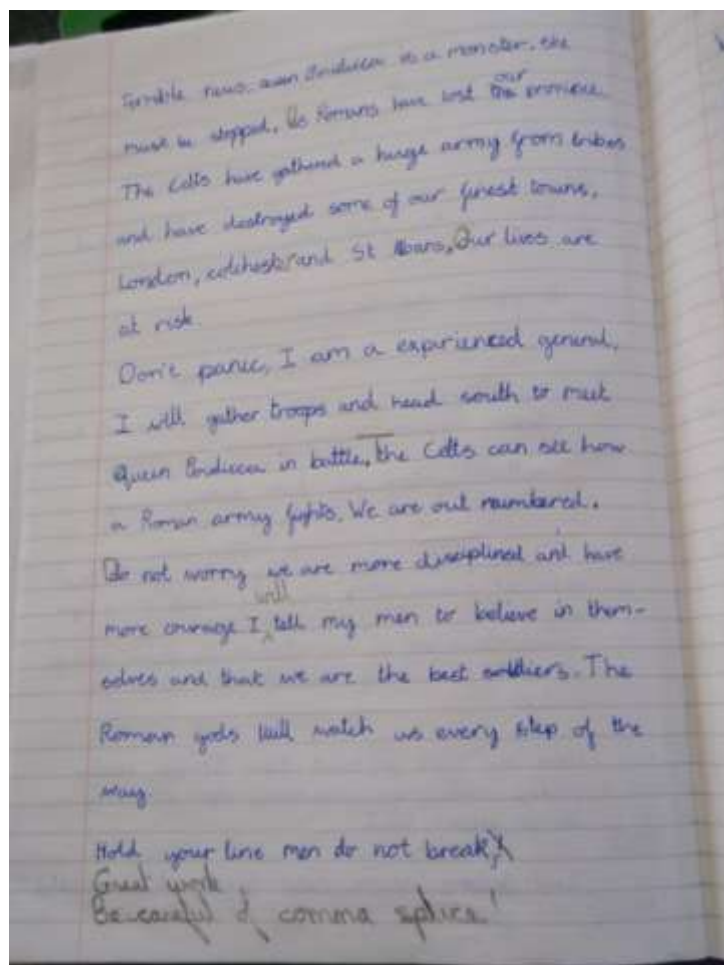 Terrible news, queen Boudicca is a monster. She
must be stopped. Us Romans have lost our province.
The Celts have gathered a huge army from tribes
and have destroyed some of our finest towns,
London, colchester and St Albans, Our lives are
at risk.
Don't panic, I am a expirienced general,
I will gather troops and head south to meet
Queen Boudicca in battle, the Celts can see how
a Roman army fights. We are out numbered.
Do not worry we are more disciplined and have
more courage I will tell my men to believe in them-
selves and that we are the best soldiers. The
Roman gods will watch us every step of the
way.
Hold your line men do not break
Great work
Be careful of comma splice!